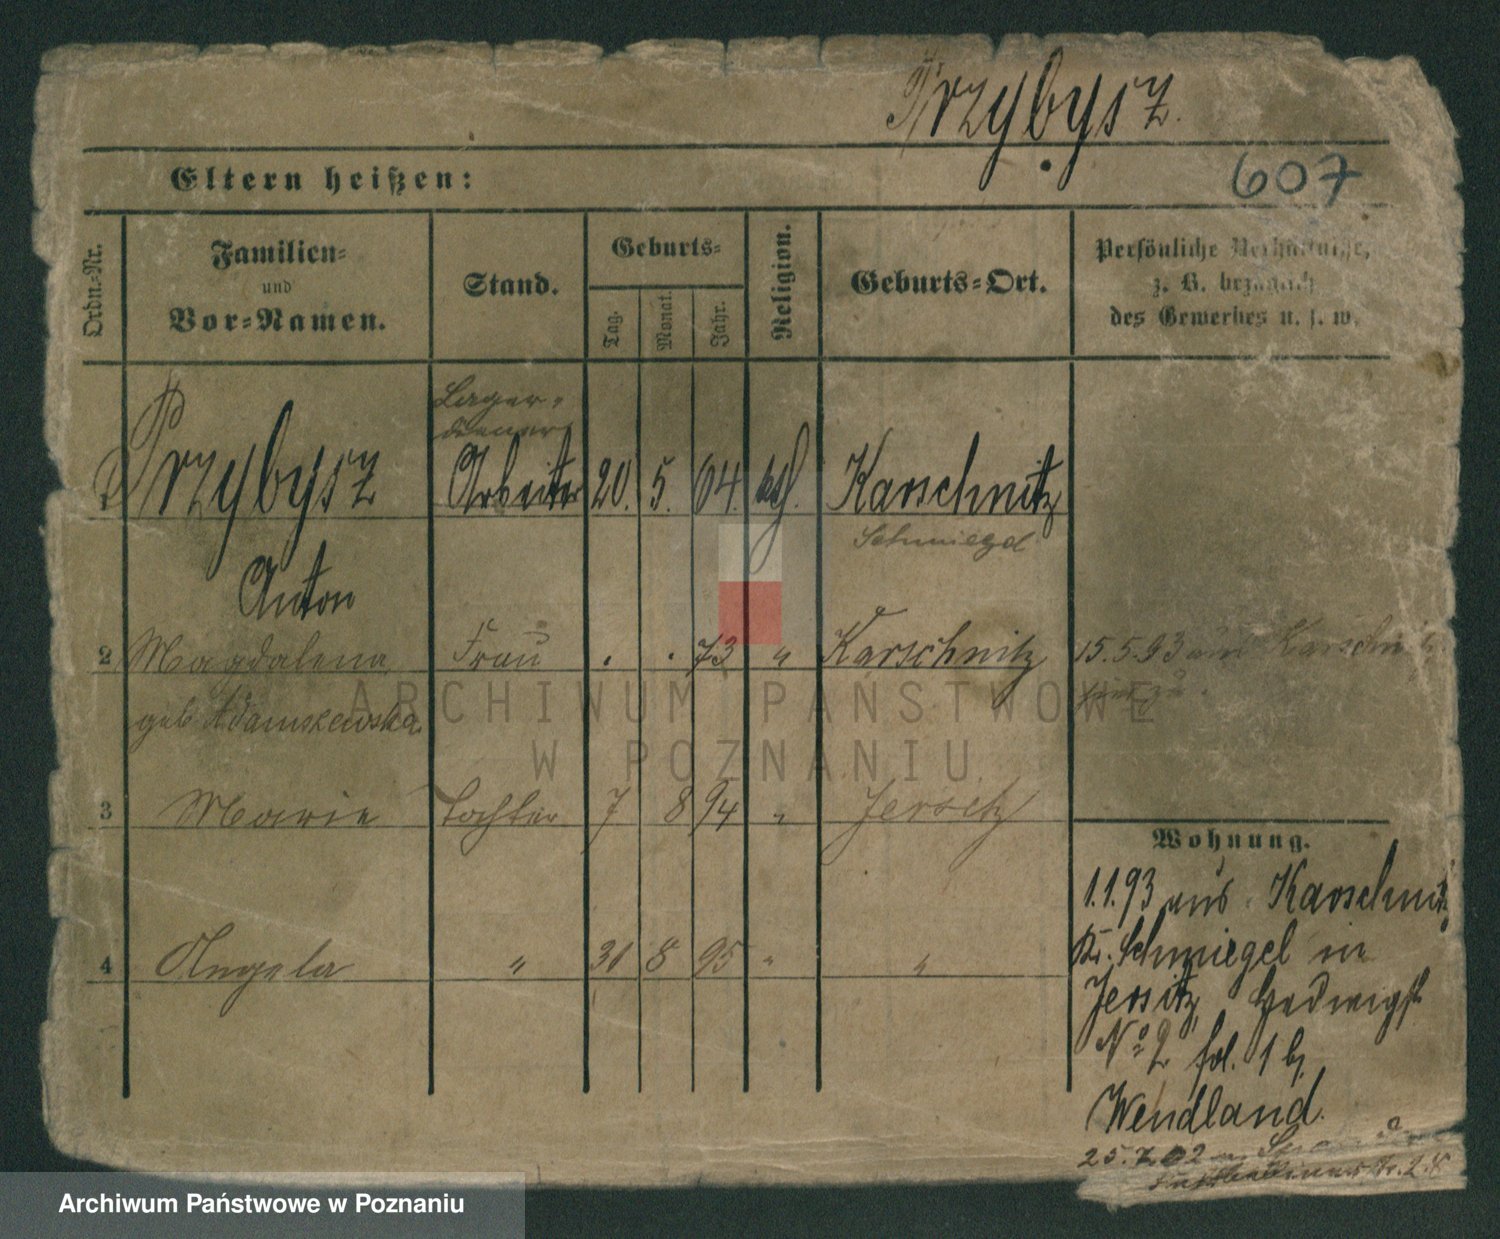 Przybysz.
607
Eltern heißen:
Ordn.-Nr.
Familien-
und
Vor-Namen.
Stand.
Geburts-
Tag.
Monat.
Jahr.
Religion.
Geburts-Ort.
Persönliche Verhältnisse,
z. B. bezüglich
des Gewerbes u. s. w.
Lager-
diener
Przybysz Arbeiter 20. 5. 64. kth. Karschnitz
Schmiegel
Anton
2 Magdalena Frau 73 " Karschnitz 15.5.93 aus Karschnitz
geb Adamszewska hierzu.
ARCHIWUM PAŃSTWOWE
W POZNANIU
3 Marie Tochter 7 8 94 " Jersitz
Wohnung.
1.1.93 aus Karschnitz
Kr. Schmiegel in
4 Angela " 31 8 95 " "
Jersitz, Hedwigst
No 2 fol. 1 b,
Wendland.
25.7.02
Archiwum Państwowe w Poznaniu